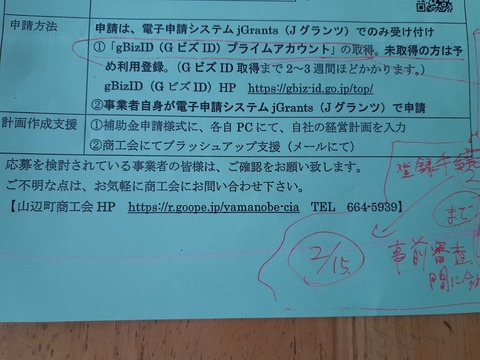 申請方法
申請は、電子申請システム jGrants（J グランツ）でのみ受け付け
①「gBizID（G ビズ ID）プライムアカウント」の取得。未取得の方は予
め利用登録。（G ビズ ID 取得まで 2～3 週間ほどかかります。）
gBizID（G ビズ ID）HP https://gbiz-id.go.jp/top/
②事業者自身が電子申請システム jGrants（J グランツ）で申請
計画作成支援
①補助金申請様式に、各自 PC にて、自社の経営計画を入力
②商工会にてブラッシュアップ支援（メールにて）
応募を検討されている事業者の皆様は、ご確認をお願い致します。
ご不明な点は、お気軽に商工会にお問い合わせ下さい。
【山辺町商工会 HP https://r.goope.jp/yamanobe-cia TEL 664-5939】
登録手続
まで
2/15
事前審査
間に合